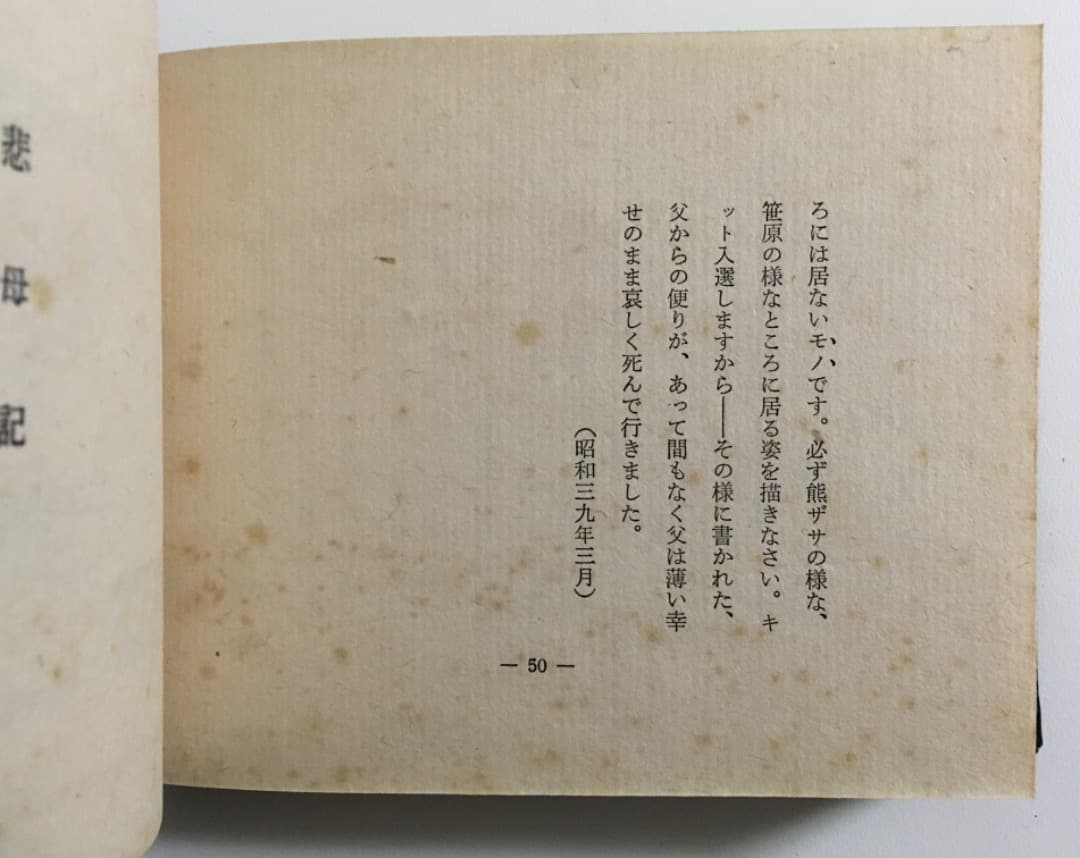 ろには居ないモノです。必ず熊ザサの様な、
笹原の様なところに居る姿を描きなさい。キ
ット入選しますから――その様に書かれた、
父からの便りが、あって間もなく父は薄い幸
せのまま哀しく死んで行きました。
（昭和三九年三月）
― 50 ―
悲母記